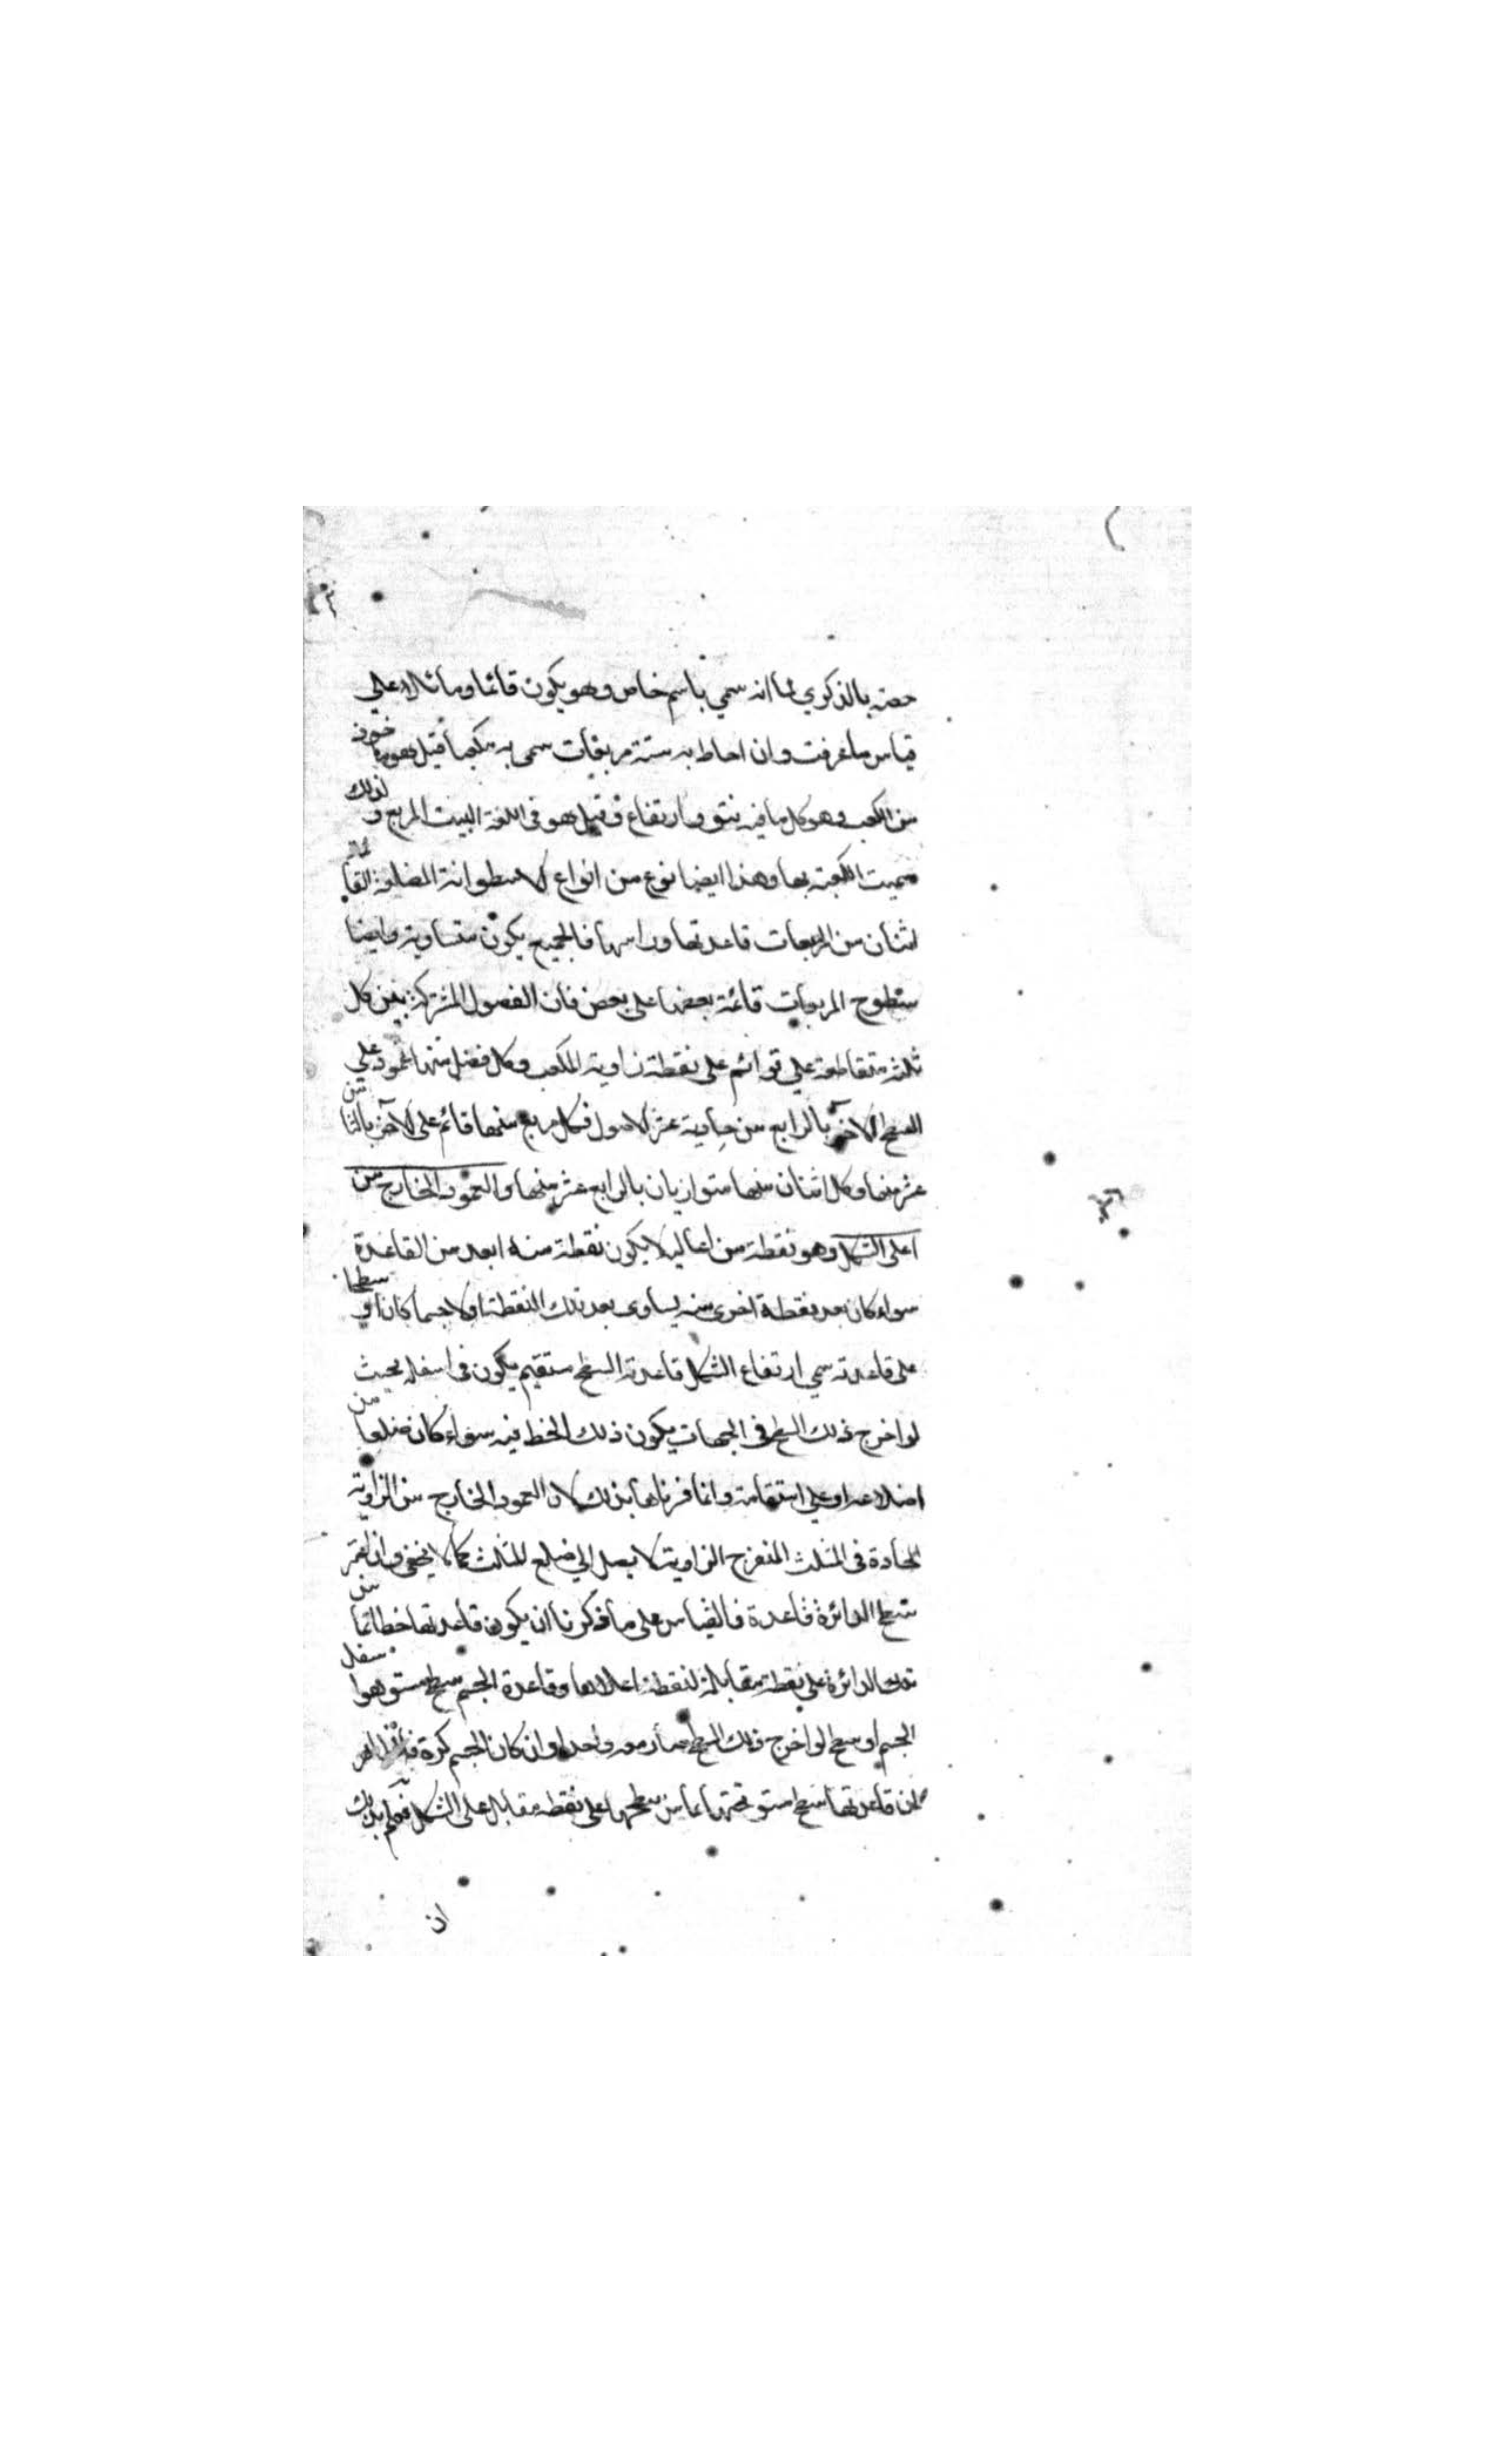 خصه بالذكر لما انه سمي باسم خاص وهو يكون قائما ومائلا على
قياس ما عرفت وان احاط به ستة مربعات سمى به مكعبا قيل هو ماخوذ
من الكعب وهو كل ما فيه نتو وارتفاع وقيل هو في اللغة البيت المربع ولذلك
سميت الكعبة بها وهذا ايضا نوع من انواع الاسطوانة المضلعة القائمة
اثنان من المربعات قاعدتها وراسها فالجميع يكون متساوية وايضا
سطوح المربعات قائمة بعضها على بعض فان الفصول المشتركة بين كل
ثلثة متقاطعة على قوائم على نقطة زاوية المكعب وكل فصل منها عمود على
السطح الاخر بالرابع من حادية عشر الاصول فكل مربع منها قائم على الاخر بالثامن
عشر منها وكل اثنان منها متوازيان بالرابع عشر منها والعمود الخارج من
اعلى الشكل وهو نقطة من اعاليه لا يكون نقطة منه ابعد من القاعدة
سواء كان بعد نقطة اخرى منه يساوى بعد تلك النقطة اولا جسما كان او سطحا
على قاعدته سمي ارتفاع الشكل قاعدة السطح مستقيم يكون في اسفله بحيث
لو اخرج ذلك السطح في الجهات يكون ذلك الخط فيه سواء كان ضلعا من
اضلاعه او على استقامته وانما فسرناها بذلك لان العمود الخارج من الزاوية
الحادة في المثلث المنفرج الزاوية لا يصل الى ضلع المثلث كما لا يخفى وان اعتبر
سطح الدائرة قاعدة فالقياس على ما ذكرنا ان يكون قاعدتها خطا مماسا
لمحيط الدائرة على نقطة مقابلة لنقطة اعلاها وقاعدة الجسم سطح مستو هو اسفل
الجسم او سطح لو اخرج ذلك السطح صار معه واحدا وان كان الجسم كرة
ان قاعدتها سطح مستو تحتها يماس سطحها على نقطة مقابل على الشكل فعلم بذلك
ان